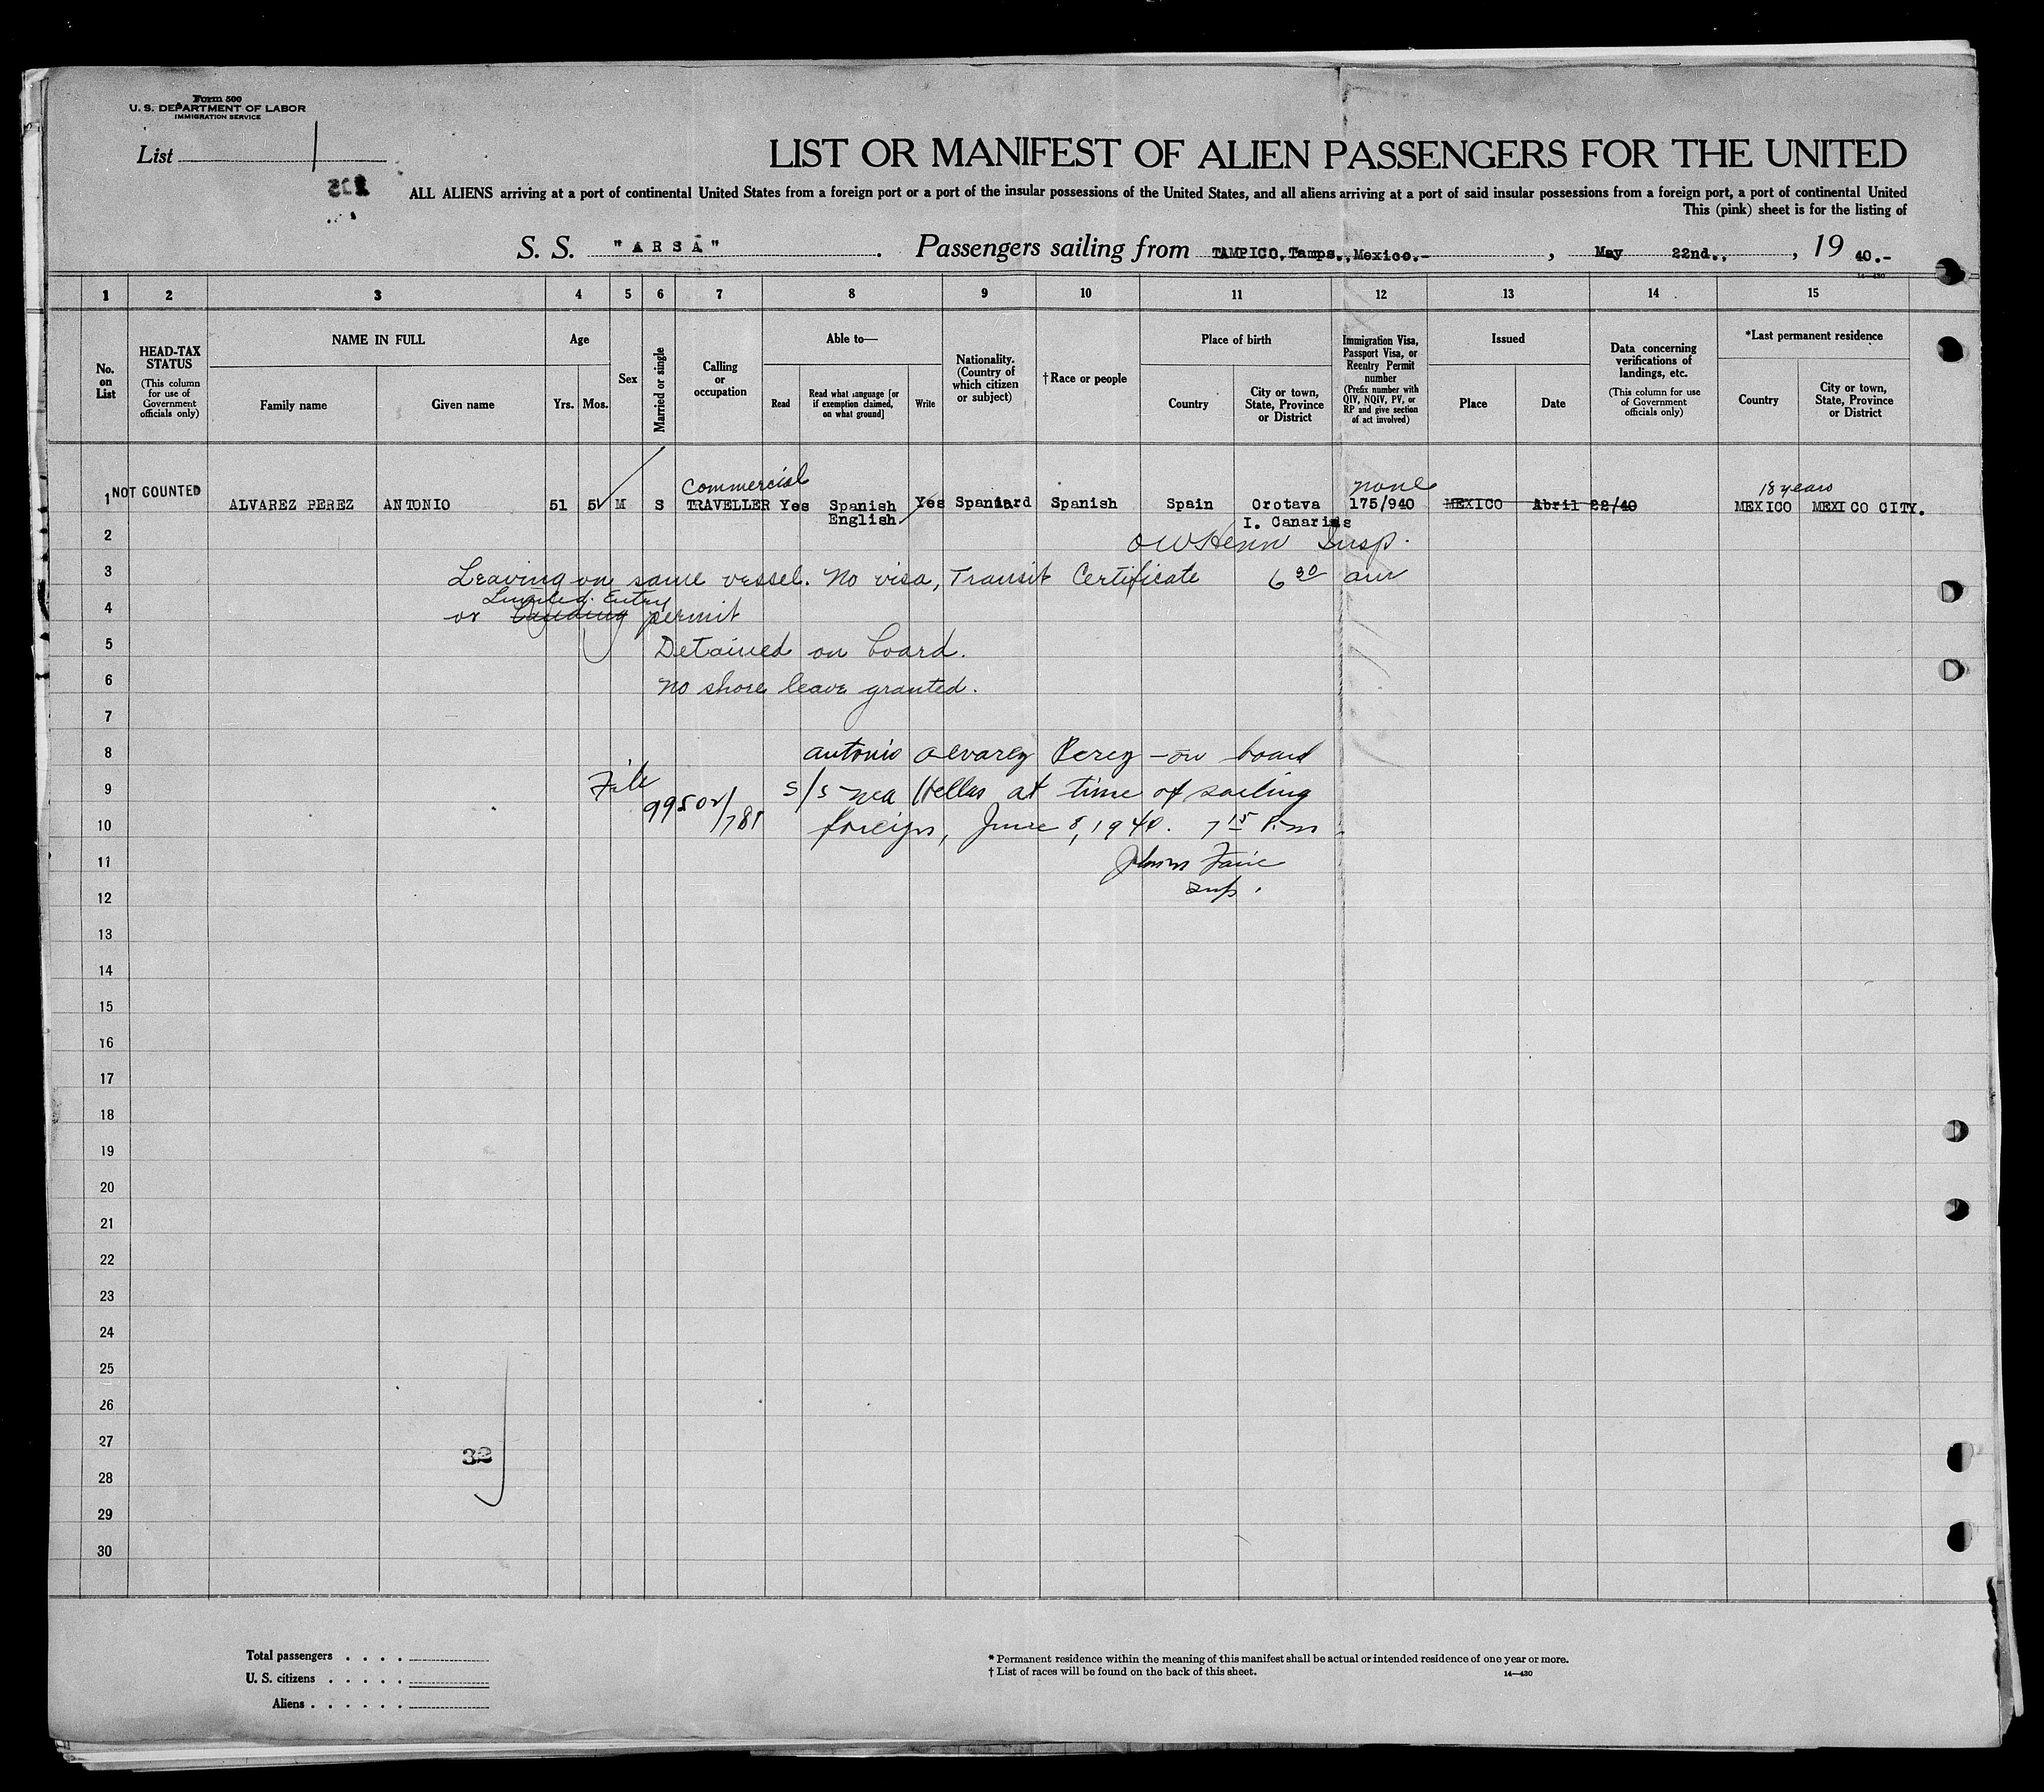 Form 500
U. S. DEPARTMENT OF LABOR
IMMIGRATION SERVICE
List 1
LIST OR MANIFEST OF ALIEN PASSENGERS FOR THE UNITED
ALL ALIENS arriving at a port of continental United States from a foreign port or a port of the insular possessions of the United States, and all aliens arriving at a port of said insular possessions from a foreign port, a port of continental United
This (pink) sheet is for the listing of
S. S. "ARSA" . Passengers sailing from TAMPICO, Tamps., Mexico.- , May 22nd., , 19 40.-
14—430
1 2 3 4 5 6 7 8 9 10 11 12 13 14 15
No. on List
HEAD-TAX STATUS (This column for use of Government officials only)
NAME IN FULL
Family name Given name
Age
Yrs. Mos.
Sex
Married or single
Calling or occupation
Able to—
Read
Read what language [or if exemption claimed, on what ground]
Write
Nationality. (Country of which citizen or subject)
† Race or people
Place of birth
Country
City or town, State, Province or District
Immigration Visa, Passport Visa, or Reentry Permit number (Prefix number with QIV, NQIV, PV, or RP and give section of act involved)
Issued
Place Date
Data concerning verifications of landings, etc. (This column for use of Government officials only)
*Last permanent residence
Country
City or town, State, Province or District
Commercial none 18 years
1 NOT COUNTED ALVAREZ PEREZ ANTONIO 51 5 M S TRAVELLER Yes Spanish Yes Spaniard Spanish Spain Orotava 175/940 MEXICO Abril 22/40 MEXICO MEXICO CITY.
English I. Canarias
2 Insp.
3 Leaving on same vessel. No visa, Transit Certificate 6 30 am
Limited Entry
4 or Landing permit
5 Detained on board.
6 No shore leave granted.
7
8 Antonio Alvarez Perez — on board
9 File 99502/781 S/S Nea Hellas at time of sailing
10 foreign, June 8, 1940. 7 15 P.m
11
12 Insp.
13
14
15
16
17
18
19
20
21
22
23
24
25
26
27
32
28
29
30
Total passengers . . . .
U. S. citizens . . . . .
Aliens . . . . . .
* Permanent residence within the meaning of this manifest shall be actual or intended residence of one year or more.
† List of races will be found on the back of this sheet. 14—430